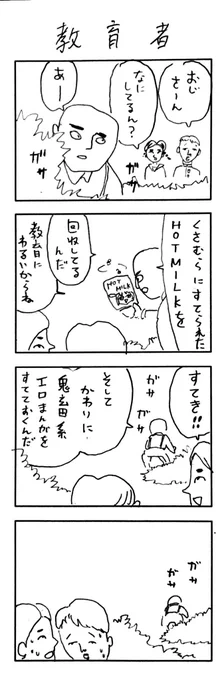 教育者
おじ
さーん
なに
してるん?
あー
ガサ
くさむらにすてられた
HOTMILKを
回収してる
んだ
教育に
わるいからね
HOT
MILK
すてき!!
ガサ
ガサ
そして
かわりに
鬼畜系
エロまんがを
すてておくんだ
ガサ
ガサ